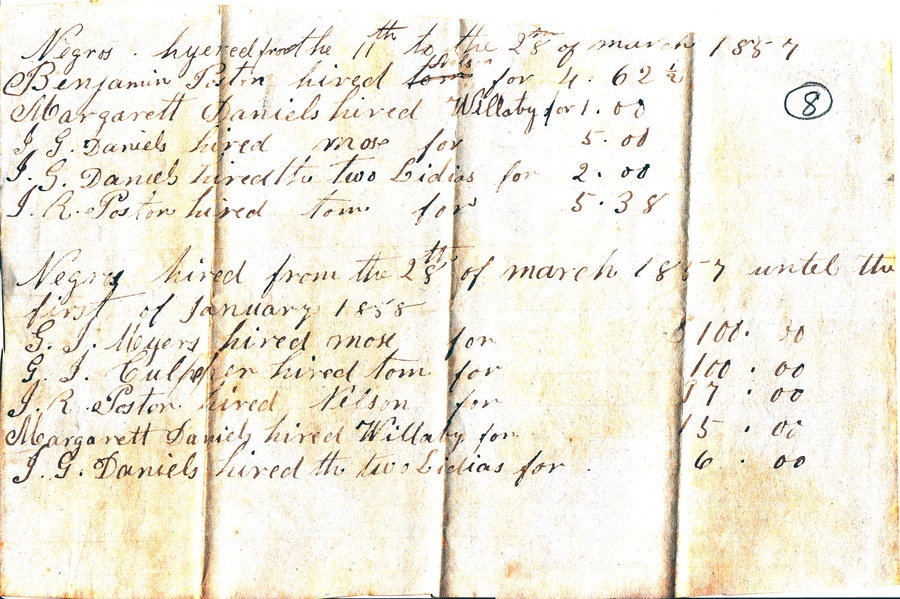 Negros . hyered from the 11th to the 28th of march 1857
Benjamin Poston hired Nelson for 4. 62 ½
8
Margarett Daniels hired Willaby for 1. 00
J. G. Daniels hired mose for 5. 00
J. G. Daniels hired the two Lidias for 2. 00
J. R. Poston hired tom for 5. 38
Negros hired from the 28th of march 1857 until the
first of January 1858
G. J. Myers hired mose for 100. 00
G. J. Culpeper hired tom for 100 . 00
J. R. Poston hired Nelson for 17 . 00
Margarett Daniels hired Willaby for 15 . 00
J. G. Daniels hired th two Lidias for . 6 . 00